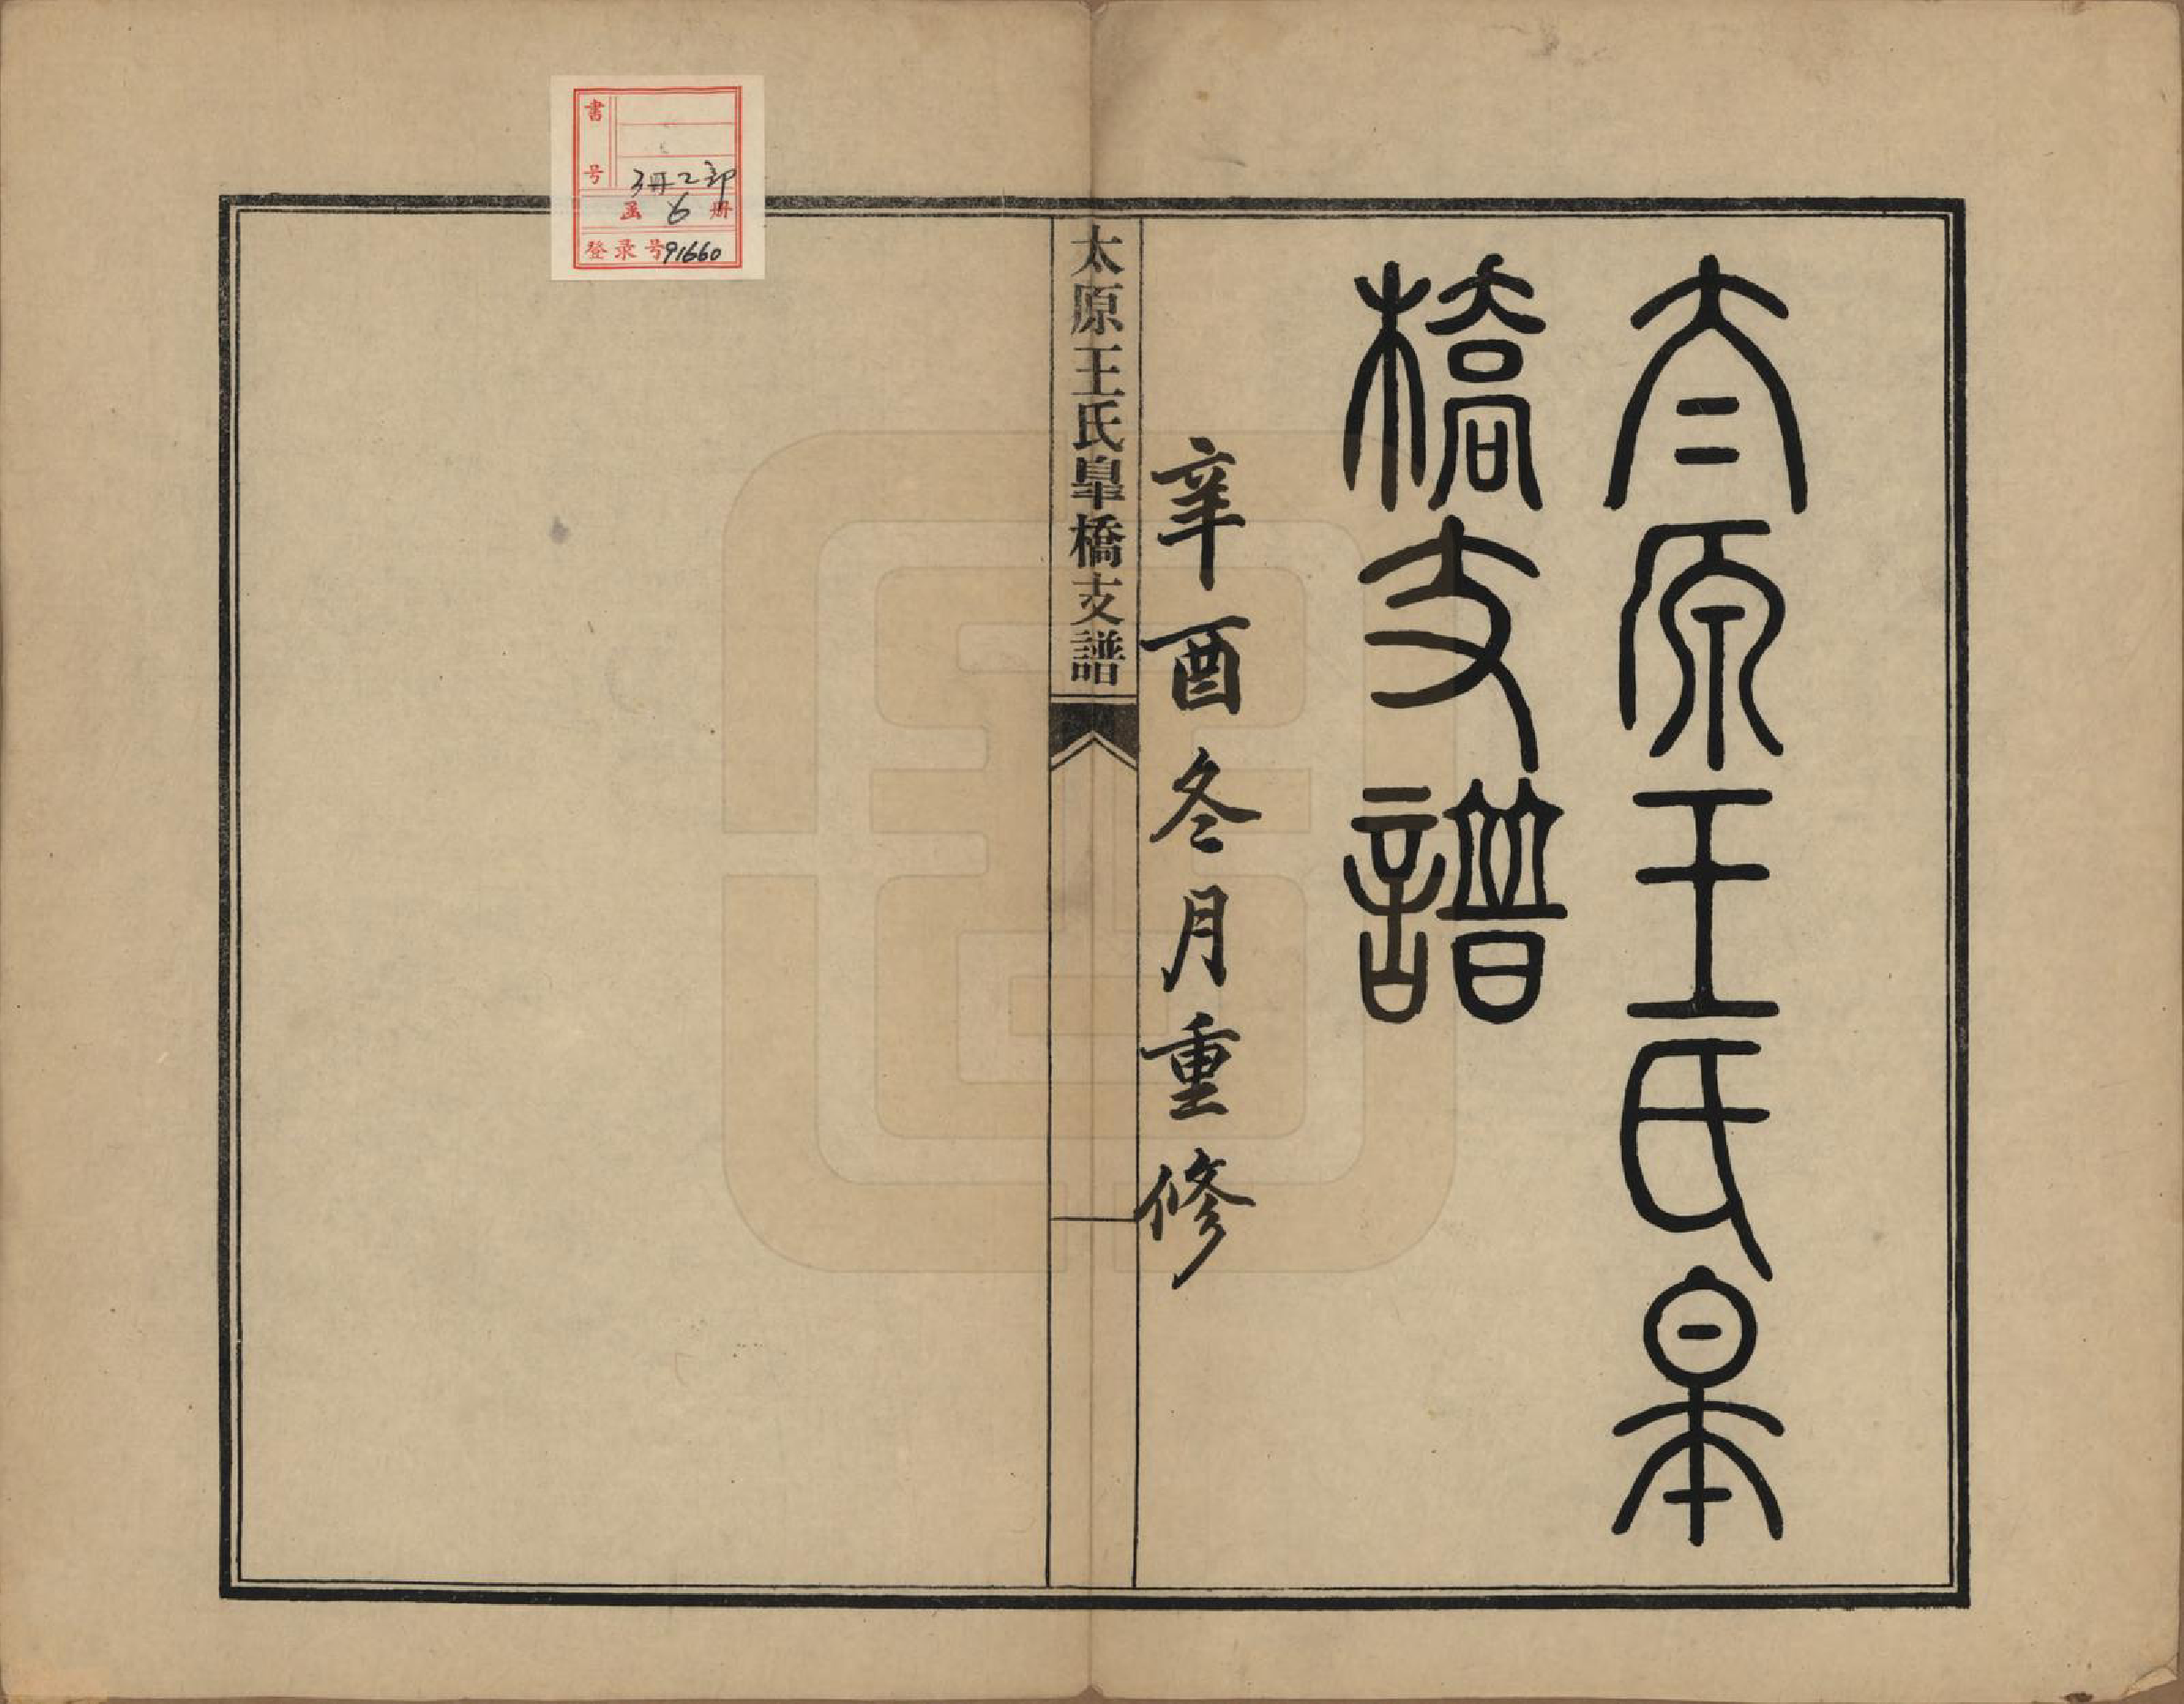 太原王氏皋
橋支譜
辛酉冬月重修
太原王氏皐橋支譜
書号
3册2部
函 6 册
登录号91660